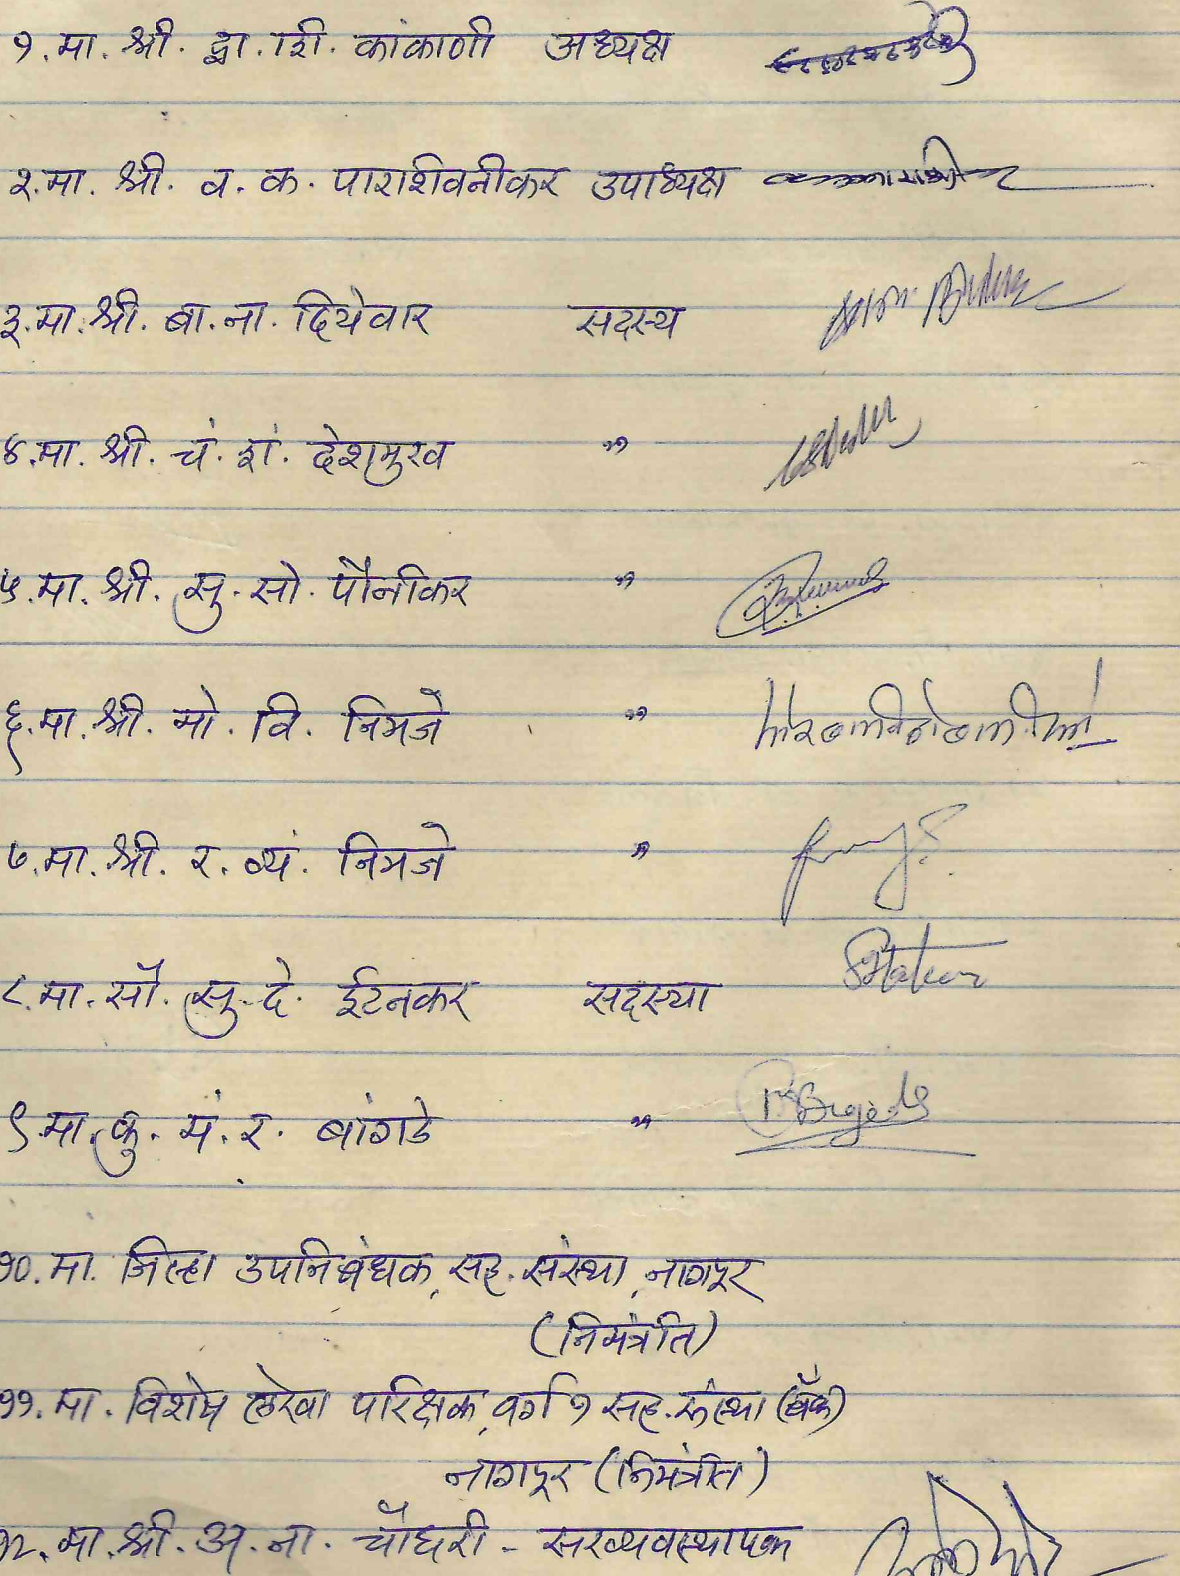 १. मा. श्री. द्वा. शि. कांकाणी अध्यक्ष
२. मा. श्री. व. क. पाराशिवनीकर उपाध्यक्ष
३. मा. श्री. बा. ना. दियेवार सदस्य
४. मा. श्री. चं. शं. देशमुख "
५. मा. श्री. सु. सो. पौनीकर "
६. मा. श्री. मो. वि. निमजे "
७. मा. श्री. र. व्यं. निमजे "
८. मा. सौ. सु. दे. ईटनकर सदस्या
९. मा. कु. मं. र. बांगडे "
१०. मा. जिल्हा उपनिबंधक, सह. संस्था, नागपूर
(निमंत्रीत)
११. मा. विशेष लेखा परिक्षक, वर्ग १ सह. संस्था (बँक)
नागपूर (निमंत्रीत)
१२. मा. श्री. अ. ना. चौधरी - सरव्यवस्थापक